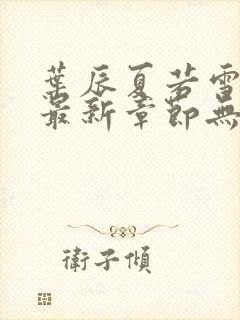 葉辰夏若雪
最新章節無
衛子傾